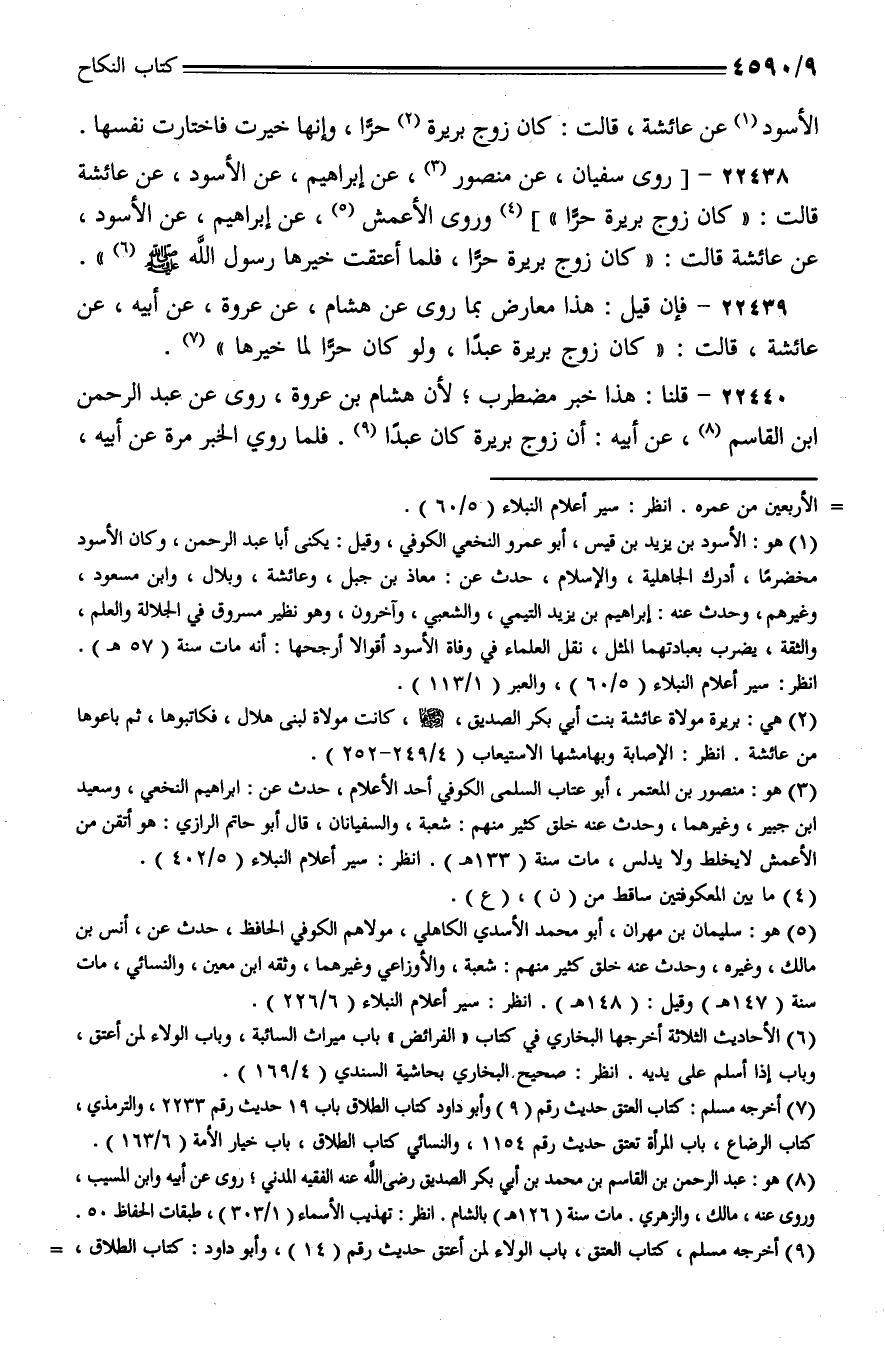 ٤٥٩٠/٩ كتاب النكاح
الأسود (١) عن عائشة ، قالت : كان زوج بريرة (٢) حرًّا ، وإنها خيرت فاختارت نفسها .
٢٢٤٣٨ - [ روى سفيان ، عن منصور (٣) ، عن إبراهيم ، عن الأسود ، عن عائشة
قالت : « كان زوج بريرة حرًّا » ] (٤) وروى الأعمش (٥) ، عن إبراهيم ، عن الأسود ،
عن عائشة قالت : « كان زوج بريرة حرًّا ، فلما أعتقت خيرها رسول اللَّه ﷺ (٦) » .
٢٢٤٣٩ - فإن قيل : هذا معارض بما روى عن هشام ، عن عروة ، عن أبيه ، عن
عائشة ، قالت : « كان زوج بريرة عبدًا ، ولو كان حرًّا لما خيرها » (٧) .
٢٢٤٤٠ - قلنا : هذا خبر مضطرب ؛ لأن هشام بن عروة ، روى عن عبد الرحمن
ابن القاسم (٨) ، عن أبيه : أن زوج بريرة كان عبدًا (٩) . فلما روي الخبر مرة عن أبيه ،
= الأربعين من عمره . انظر : سير أعلام النبلاء ( ٦٠/٥ ) .
(١) هو : الأسود بن يزيد بن قيس ، أبو عمرو النخعي الكوفي ، وقيل : يكنى أبا عبد الرحمن ، وكان الأسود
مخضرمًا ، أدرك الجاهلية ، والإسلام ، حدث عن : معاذ بن جبل ، وعائشة ، وبلال ، وابن مسعود ،
وغيرهم ، وحدث عنه : إبراهيم بن يزيد التيمي ، والشعبي ، وآخرون ، وهو نظير مسروق في الجلالة والعلم ،
والثقة ، يضرب بعبادتهما المثل ، نقل العلماء في وفاة الأسود أقوالا أرجحها : أنه مات سنة ( ٥٧ هـ ) .
انظر : سير أعلام النبلاء ( ٦٠/٥ ) ، والعبر ( ١١٣/١ ) .
(٢) هي : بريرة مولاة عائشة بنت أبي بكر الصديق ، ، كانت مولاة لبنى هلال ، فكاتبوها ، ثم باعوها
من عائشة . انظر : الإصابة وبهامشها الاستيعاب ( ٢٤٩/٤-٢٥٢ ) .
(٣) هو : منصور بن المعتمر ، أبو عتاب السلمى الكوفي أحد الأعلام ، حدث عن : ابراهيم النخعي ، وسعيد
ابن جبير ، وغيرهما ، وحدث عنه خلق كثير منهم : شعبة ، والسفيانان ، قال أبو حاتم الرازي : هو أتقن من
الأعمش لايخلط ولا يدلس ، مات سنة ( ١٣٣هـ ) . انظر : سير أعلام النبلاء ( ٤٠٢/٥ ) .
(٤) ما بين المعكوفتين ساقط من ( ن ) ، ( ع ) .
(٥) هو : سليمان بن مهران ، أبو محمد الأسدي الكاهلي ، مولاهم الكوفي الحافظ ، حدث عن ، أنس بن
مالك ، وغيره ، وحدث عنه خلق كثير منهم : شعبة ، والأوزاعي وغيرهما ، وثقه ابن معين ، والنسائي ، مات
سنة ( ١٤٧هـ ) وقيل : ( ١٤٨هـ ) . انظر : سير أعلام النبلاء ( ٢٢٦/٦ ) .
(٦) الأحاديث الثلاثة أخرجها البخاري في كتاب « الفرائض » باب ميراث السائبة ، وباب الولاء لمن أعتق ،
وباب إذا أسلم على يديه . انظر : صحيح البخاري بحاشية السندي ( ١٦٩/٤ ) .
(٧) أخرجه مسلم : كتاب العتق حديث رقم ( ٩ ) وأبو داود كتاب الطلاق باب ١٩ حديث رقم ٢٢٣٣ ، والترمذي ،
كتاب الرضاع ، باب المرأة تعتق حديث رقم ١١٥٤ ، والنسائي كتاب الطلاق ، باب خيار الأمة ( ١٦٣/٦ ) .
(٨) هو : عبد الرحمن بن القاسم بن محمد بن أبي بكر الصديق رضى اللَّه عنه الفقيه المدني ؛ روى عن أبيه وابن المسيب ،
وروى عنه ، مالك ، والزهري . مات سنة ( ١٢٦هـ ) بالشام . انظر : تهذيب الأسماء ( ٣٠٣/١ ) ، طبقات الحفاظ ٥٠ .
(٩) أخرجه مسلم ، كتاب العتق ، باب الولاء لمن أعتق حديث رقم ( ١٤ ) ، وأبو داود : كتاب الطلاق ، =